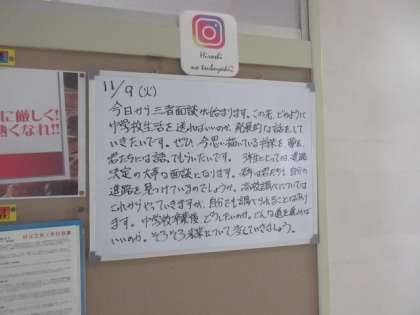 Hiroshi
no tsubuyaki?
11/9 (火)
今日から三者面談が始まります。この先、どのように
中学校生活を送ればいいのか、発展的な話をして
いきたいです。ぜひ、今思い描いている将来を
君たちには語ってもらいたいです。 3年生にとっては、進路
決定の大事な面談になります。 君たち、自分の
進路を見つけているのでしょうか。高校調べについては
これからやっていきますが、自分でも調べられることはあり
ます。中学校卒業後どうしたいのか。どんな道を進めば
いいのか。そろそろ未来について考えていきましょう。
に厳しく!
熱くなれ!!